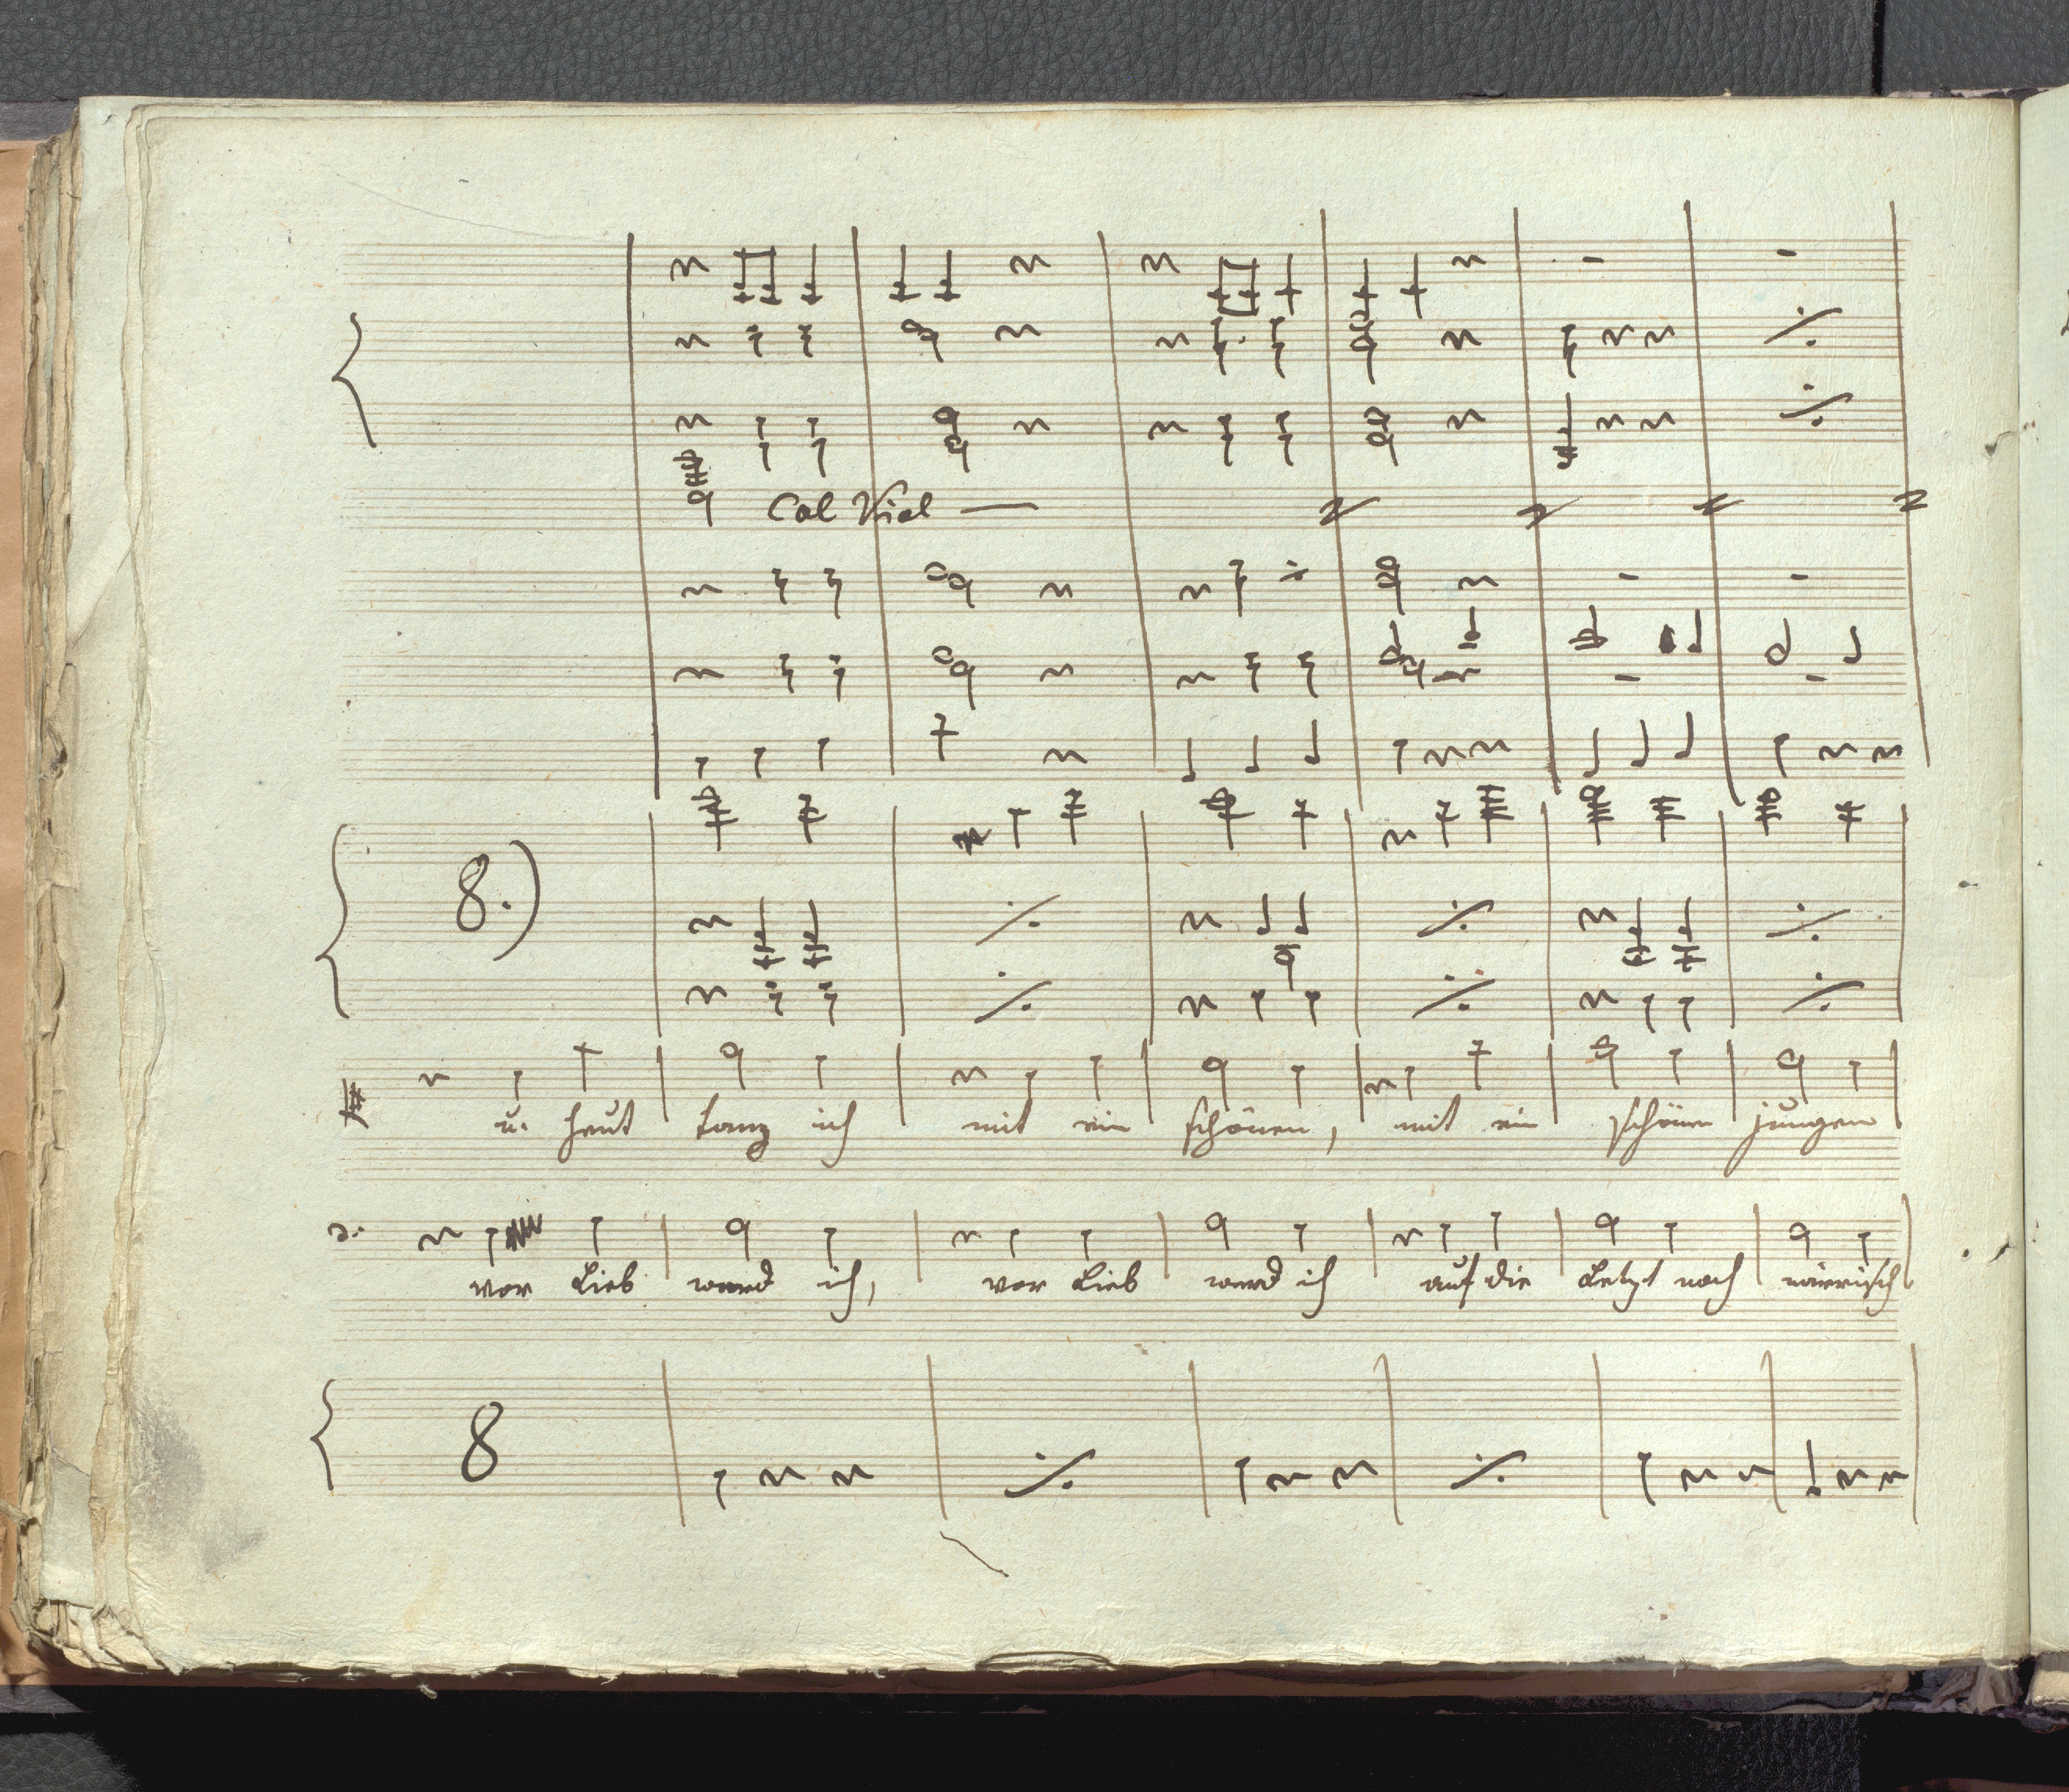 Col Viol
8.)
u. heut tanz ich mit ein schönen, mit ein schönen jungen
2.
vor Lieb werd ich, vor Lieb werd ich auf die Letzt noch närrisch
8